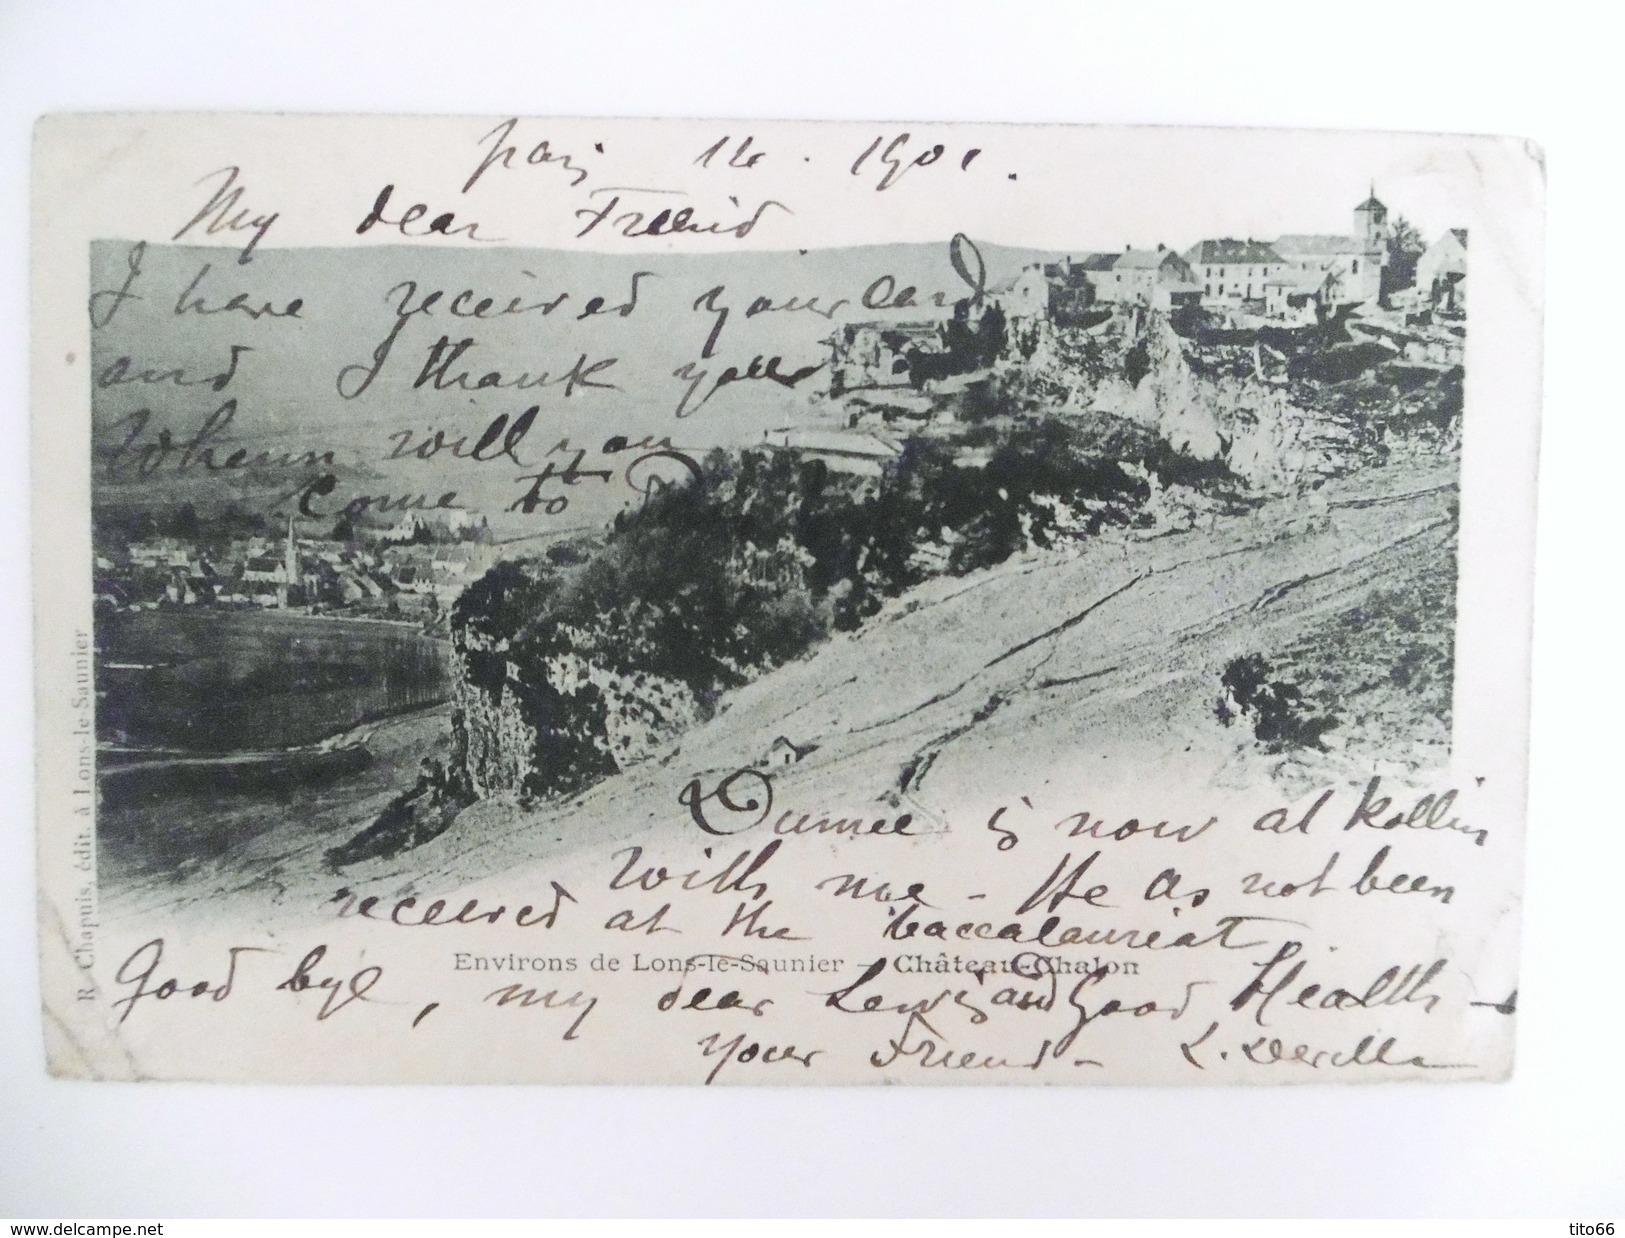 14. 1901.
My dear Friend
I have received your card
and I thank your
Whenn will you
come to
is now at Rollin
with me - He as not been
received at the baccalauriat.
Environs de Lons-le-Saunier — Château-Chalon
Good bye, my dear Lewis and Good Health -
your Friend -
R. Chapuis, édit. à Lons-le-Saunier
www.delcampe.net
tito66